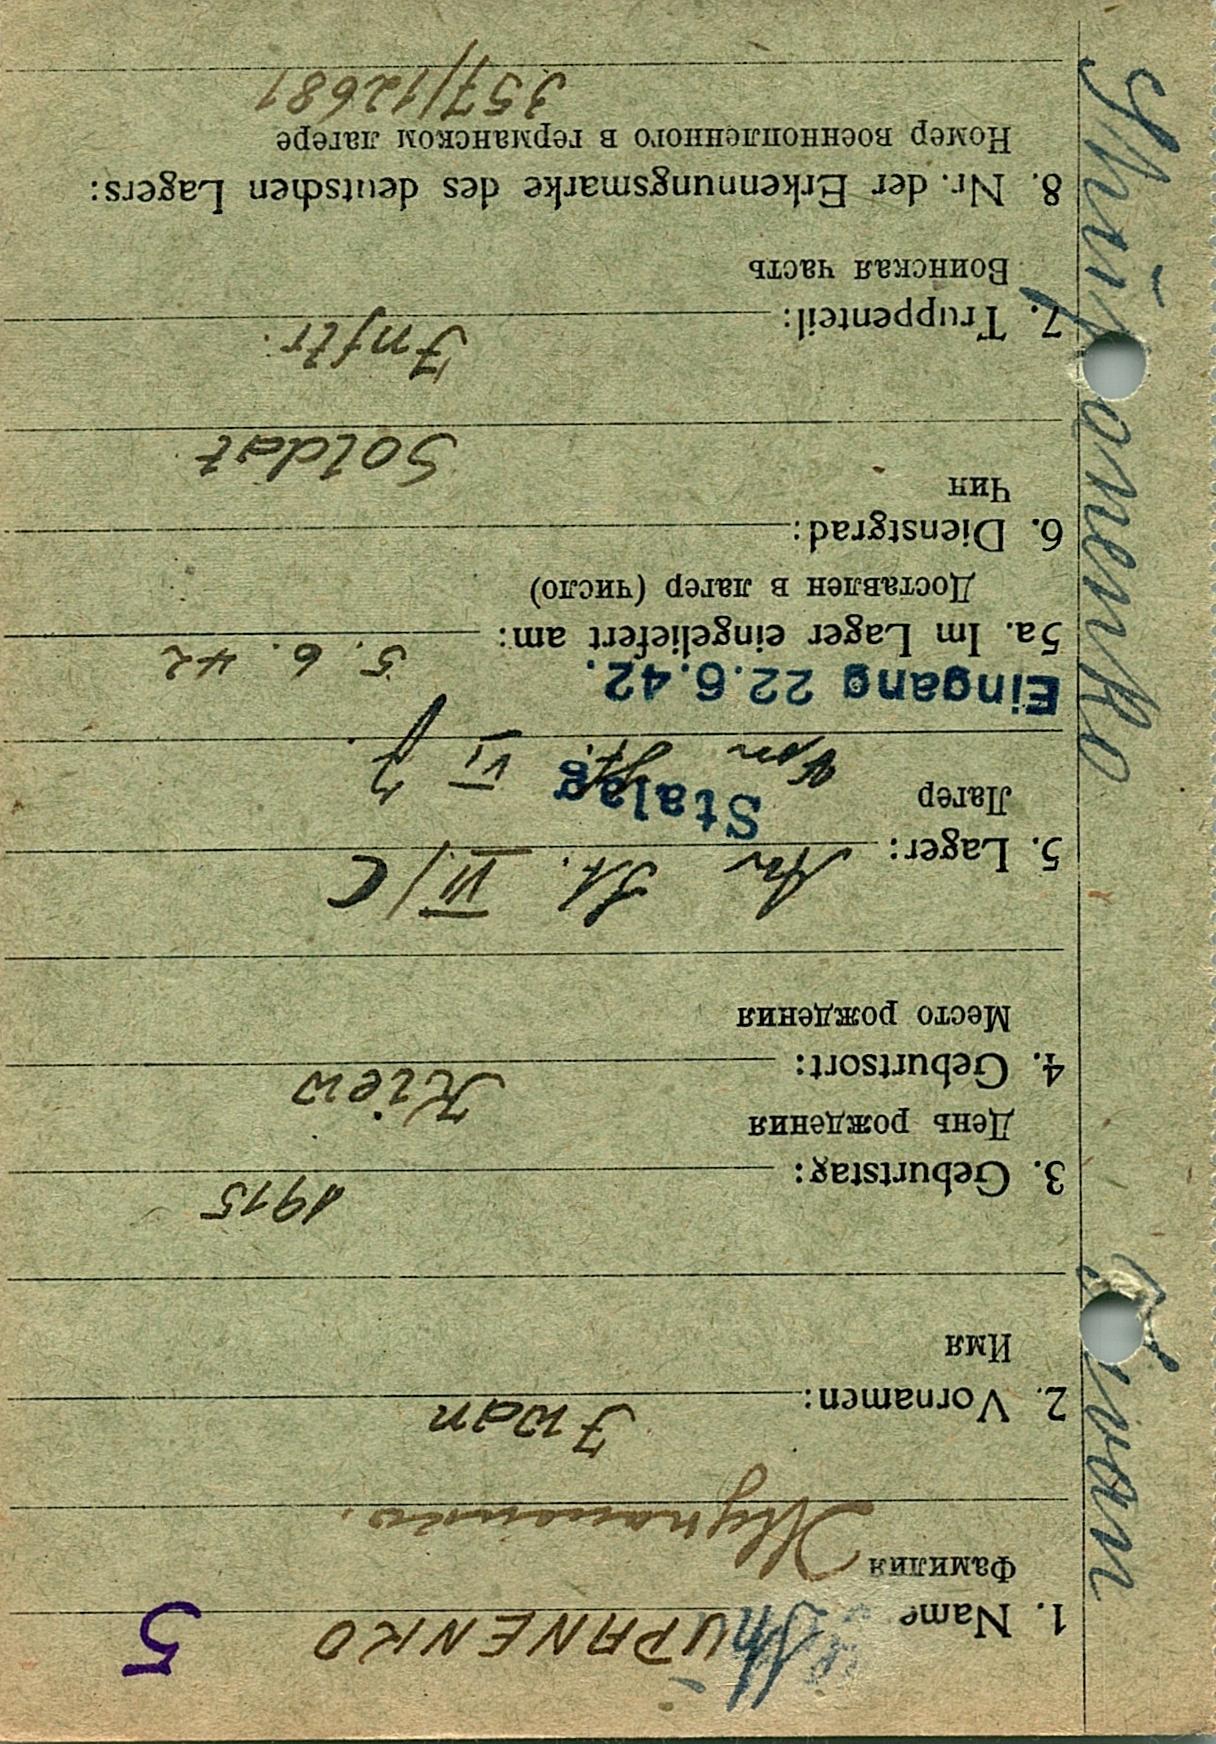 5
1. Name UPANENKO
Фамилия
2. Vornamen: Iwan
Имя
3. Geburtstag: 1915
День рождения
4. Geburtsort: Kiew
Место рождения
5. Lager: An St. VI/C
Stalag
Лагер
von VI
Eingang 22.6.42.
5a. Im Lager eingeliefert am: 5.6.42
Доставлен в лагер (число)
6. Dienstgrad: Soldat
Чин
7. Truppenteil: Inftr.
Воинская часть
8. Nr. der Erkennungsmarke des deutschen Lagers:
Номер военнопленного в германском лагере
357/12681
Iwan